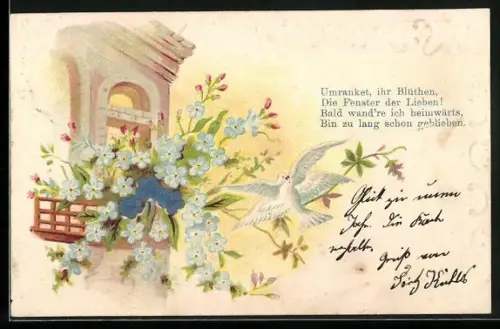 Umranket, ihr Blüthen,
Die Fenster der Lieben!
Bald wand're ich heimwärts,
Bin zu lang schon geblieben.
Glück zu neuen
Jahr. Die Karte
erhalten.
Gruß von
Fritz